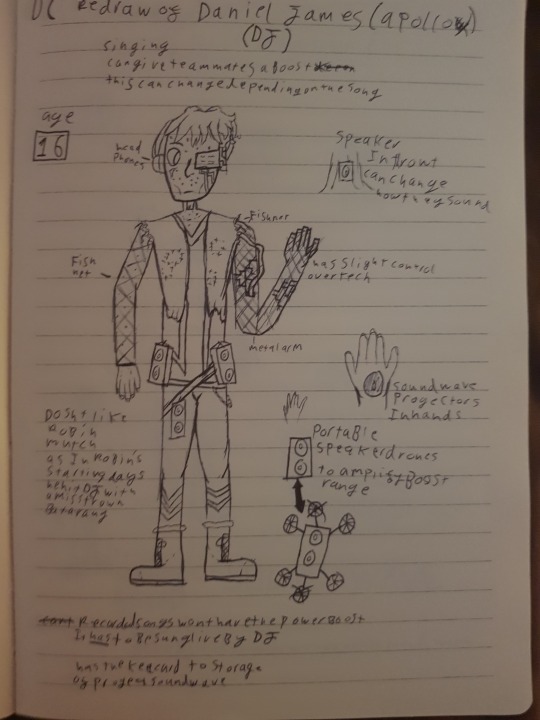 Redraw of Daniel James (apollo)
(DJ)
singing
can give teammates a boost
this can change depending on the song
age
16
head
phones
Speaker
In front
can change
how they sound
Fishnet
Fish
net
has slight control
over tech
metal arm
soundwave
Projectors
In hands
Portable
Speaker drones
to amplify Boost
range
Dosnt like
Robin
mutch
as In Robin's
starting days
he hit DJ with
a misstrown
Batarang
Recorded songs wont have the power Boost
It has to Be sung live By DJ
has the keycard to storage
of project soundwave